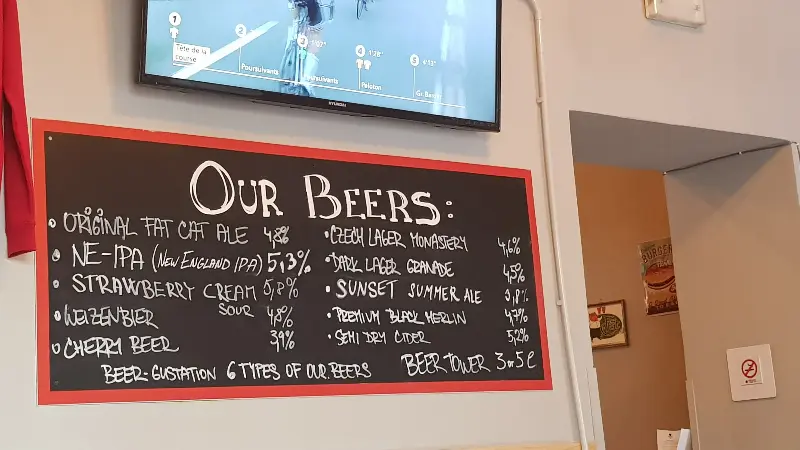 1
2
3
4
5
1'07"
1'28"
4'13"
Tête de la
course
Poursuivants
Poursuivants
Peloton
HYUNDAI
OUR BEERS:
ORIGINAL FAT CAT ALE 4,8%
NE-IPA (NEW ENGLAND IPA) 5,3%
STRAWBERRY CREAM 5,8%
SOUR
WEIZENBIER 4,8%
CHERRY BEER 3,9%
CZECH LAGER MONASTERY 4,6%
DARK LAGER GRANADE 4,5%
SUNSET SUMMER ALE 3,8%
PREMIUM BLACK MERLIN 4,7%
SEMI DRY CIDER 5,2%
BEER-GUSTATION 6 TYPES OF OUR BEERS
BEER TOWER 3 or 5 ℓ
BURGER